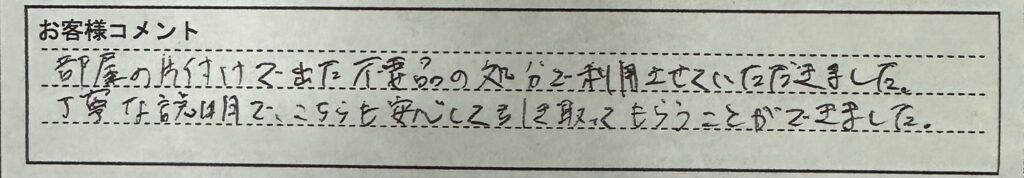 お客様コメント
部屋の片付けで出た不要品の処分で利用させていただきました。
丁寧な説明で、こちらも安心して引き取ってもらうことができました。